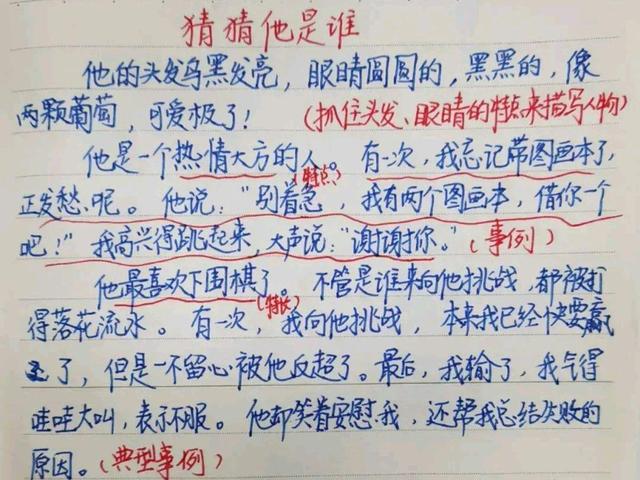 猜猜他是谁
他的头发乌黑发亮，眼睛圆圆的，黑黑的，像
两颗葡萄，可爱极了！（抓住头发、眼睛的特点来描写人物）
他是一个热情大方的人。有一次，我忘记带图画本了，
（特点）
正发愁呢。他说：“别着急，我有两个图画本，借你一个
吧！”我高兴得跳起来，大声说：“谢谢你。”（事例）
他最喜欢下围棋了。不管是谁来向他挑战，都被打
（特长）
得落花流水。有一次，我向他挑战，本来我已经快要赢
了，但是一不留心被他反超了。最后，我输了，我气得
哇哇大叫，表示不服。他却笑着安慰我，还帮我总结失败的
原因。（典型事例）